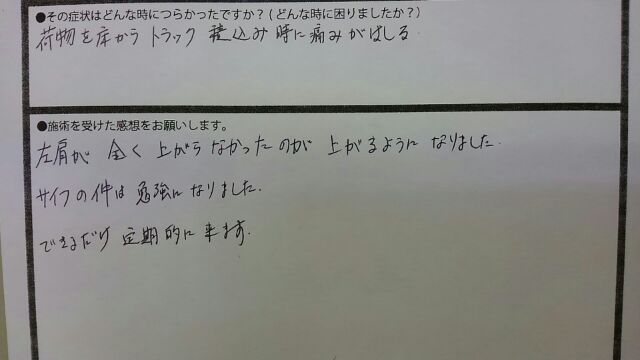 ●その症状はどんな時につらかったですか？(どんな時に困りましたか？)
荷物を床からトラック積込み時に痛みがはしる
●施術を受けた感想をお願いします。
左肩が全く上がらなかったのが上がるようになりました.
サイフの件は勉強になりました.
できるだけ定期的に来ます.